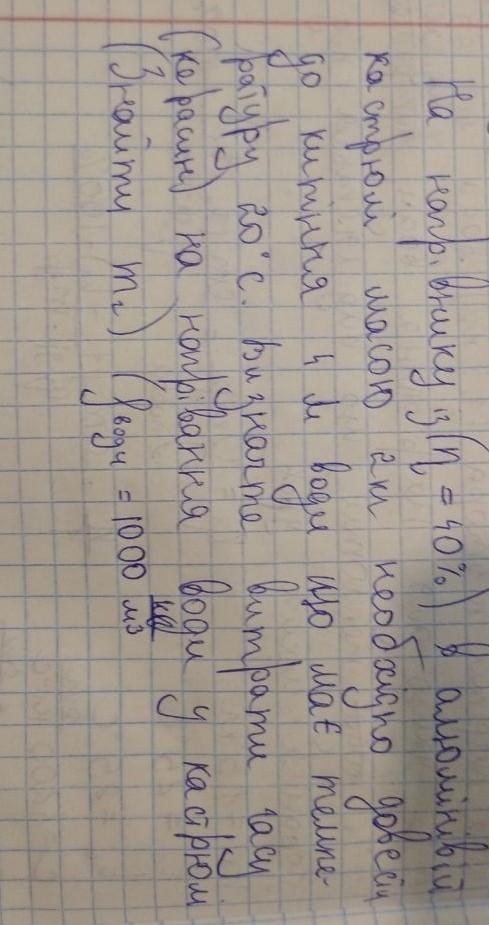 На нагрівнику з (η = 40%) в алюмінієвій
каструлі масою 2кг необхідно довести
до кипіння 4 л води що має темпе-
ратуру 20°С. Визначте витрати часу
(керосин) на нагрівання води у каструлі
(Знайти m₂) (ρ води = 1000 кг/м3